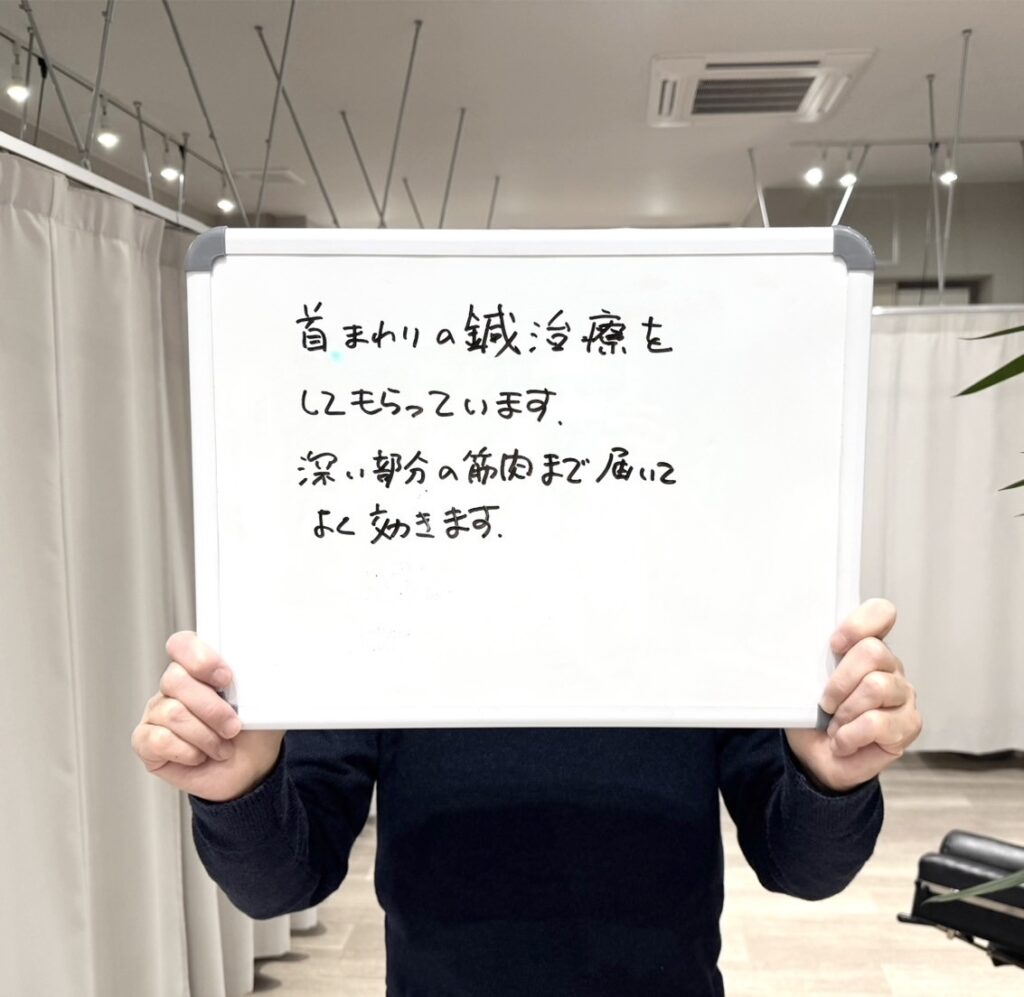 首まわりの鍼治療を
してもらっています.
深い部分の筋肉まで届いて
よく効きます.